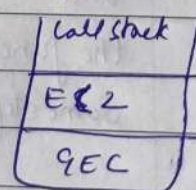 Call stack
EC2
GEC